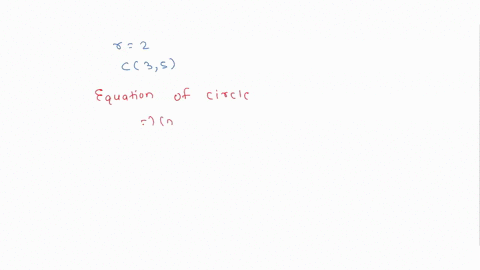 r = 2
C(3,5)
Equation of circle
=) (